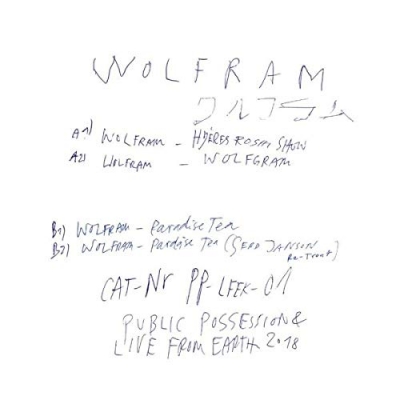 WOLFRAM
A1) WOLFRAM – HYÈRES ROSHI SHOW
A2) WOLFRAM – WOLFGRAM
B1) WOLFRAM – Paradise Tea
B2) WOLFRAM – Paradise Tea (GERD JANSON
CAT-Nr PP-LFEK-01
PUBLIC POSSESSION &
LIVE FROM EARTH 2018